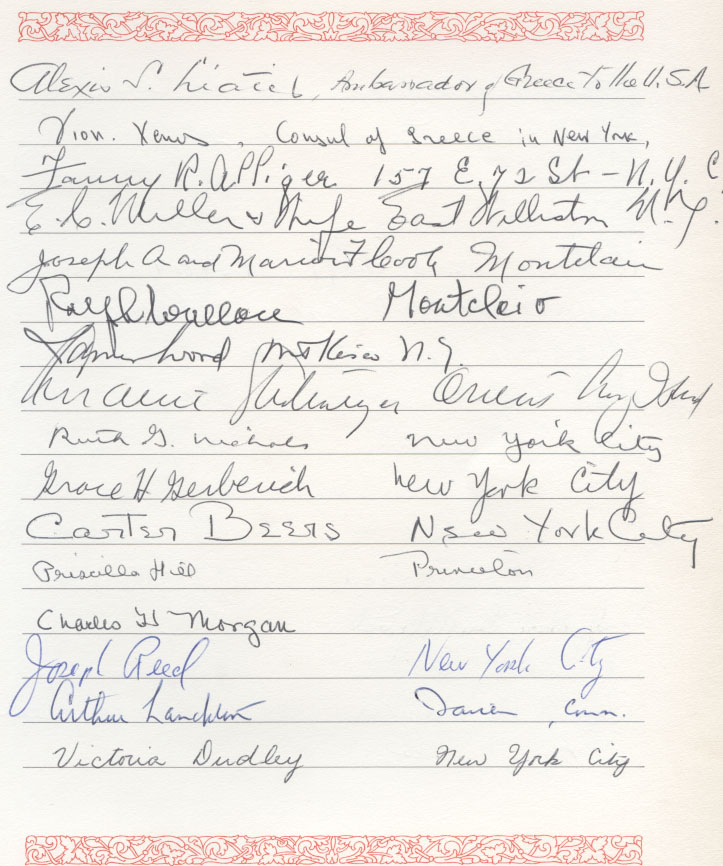 Alexis S. Liatis, Ambassador of Greece To the U.S.A
Dion. Xenos, Consul of Greece in New York,
Fanny R. Alliger 157 E. 72 St - N.Y.C.
E. C. Miller & Wife East Williston N.Y.
Joseph A and Marion F Cook Montclair
Ralph Wallace Montclair
Wood Mt Kisco N.Y.
Orient Long Island
Ruth G. Nichols New York City
Grace H Gerberich New York City
Carter Beers New York City
Priscilla Hill Princeton
Charles H Morgan
Joseph Reed New York City
Arthur Lanckton Darien, Conn.
Victoria Dudley New York City